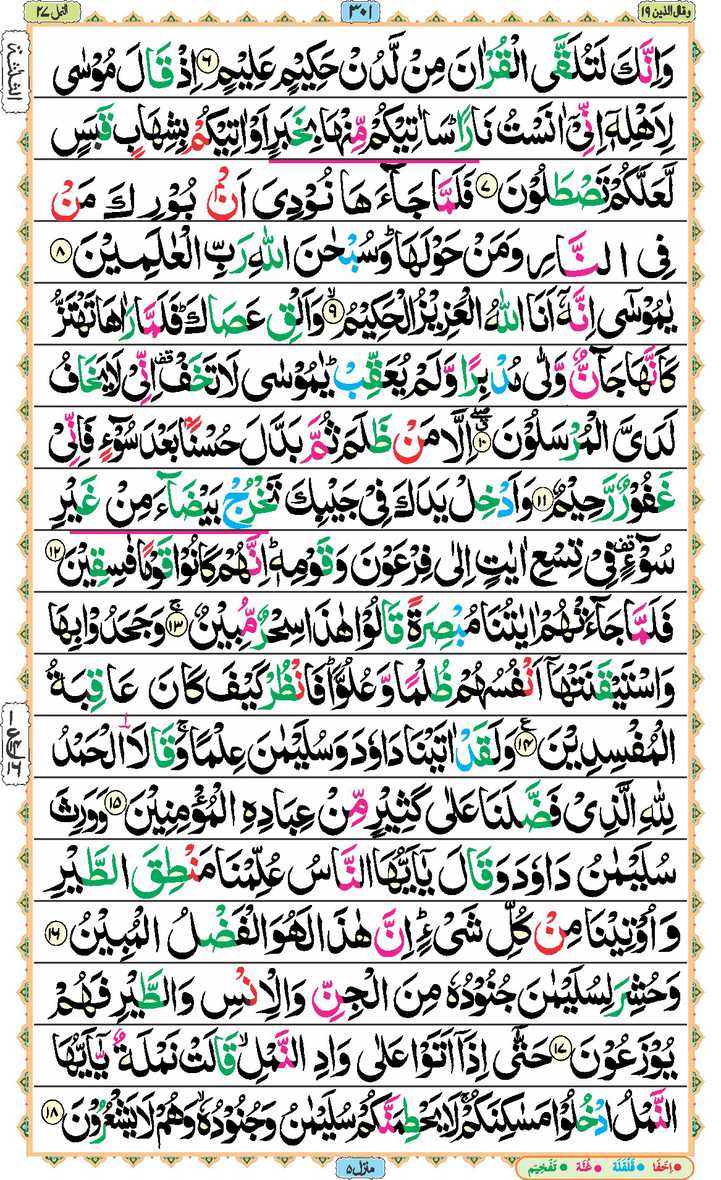 وقال الذین ۱۹
۳۰۱
النمل ۲۷
وَاِنَّكَ لَتُلَقَّى الْقُرْاٰنَ مِنْ لَّدُنْ حَكِیْمٍ عَلِیْمٍ ۶ اِذْ قَالَ مُوْسٰى
لِاَهْلِهٖۤ اِنِّیْۤ اٰنَسْتُ نَارًاؕ سَاٰتِیْكُمْ مِّنْهَا بِخَبَرٍ اَوْ اٰتِیْكُمْ بِشِهَابٍ قَبَسٍ
لَّعَلَّكُمْ تَصْطَلُوْنَ ۷ فَلَمَّا جَآءَهَا نُوْدِیَ اَنْۢ بُوْرِكَ مَنْ
فِی النَّارِ وَمَنْ حَوْلَهَاؕ وَسُبْحٰنَ اللّٰهِ رَبِّ الْعٰلَمِیْنَ ۸
یٰمُوْسٰۤى اِنَّهٗۤ اَنَا اللّٰهُ الْعَزِیْزُ الْحَكِیْمُۙ ۹ وَاَلْقِ عَصَاكَؕ فَلَمَّا رَاٰهَا تَهْتَزُّ
كَاَنَّهَا جَآنٌّ وَّلّٰى مُدْبِرًا وَّلَمْ یُعَقِّبْؕ یٰمُوْسٰى لَا تَخَفْ۫ اِنِّیْ لَا یَخَافُ
لَدَیَّ الْمُرْسَلُوْنَۗۖ ۱۰ اِلَّا مَنْ ظَلَمَ ثُمَّ بَدَّلَ حُسْنًۢا بَعْدَ سُوْٓءٍ فَاِنِّیْ
غَفُوْرٌ رَّحِیْمٌ ۱۱ وَاَدْخِلْ یَدَكَ فِیْ جَیْبِكَ تَخْرُجْ بَیْضَآءَ مِنْ غَیْرِ
سُوْٓءٍ۫ فِیْ تِسْعِ اٰیٰتٍ اِلٰى فِرْعَوْنَ وَقَوْمِهٖؕ اِنَّهُمْ كَانُوْا قَوْمًا فٰسِقِیْنَ ۱۲
فَلَمَّا جَآءَتْهُمْ اٰیٰتُنَا مُبْصِرَةً قَالُوْا هٰذَا سِحْرٌ مُّبِیْنٌۚ ۱۳ وَجَحَدُوْا بِهَا
وَاسْتَیْقَنَتْهَاۤ اَنْفُسُهُمْ ظُلْمًا وَّعُلُوًّاؕ فَانْظُرْ كَیْفَ كَانَ عَاقِبَةُ
الْمُفْسِدِیْنَ ۱۴ وَلَقَدْ اٰتَیْنَا دَاوٗدَ وَسُلَیْمٰنَ عِلْمًاۚ وَقَالَا الْحَمْدُ
لِلّٰهِ الَّذِیْ فَضَّلَنَا عَلٰى كَثِیْرٍ مِّنْ عِبَادِهِ الْمُؤْمِنِیْنَ ۱۵ وَوَرِثَ
سُلَیْمٰنُ دَاوٗدَ وَقَالَ یٰۤاَیُّهَا النَّاسُ عُلِّمْنَا مَنْطِقَ الطَّیْرِ
وَاُوْتِیْنَا مِنْ كُلِّ شَیْءٍؕ اِنَّ هٰذَا لَهُوَ الْفَضْلُ الْمُبِیْنُ ۱۶
وَحُشِرَ لِسُلَیْمٰنَ جُنُوْدُهٗ مِنَ الْجِنِّ وَالْاِنْسِ وَالطَّیْرِ فَهُمْ
یُوْزَعُوْنَ ۱۷ حَتّٰۤى اِذَاۤ اَتَوْا عَلٰى وَادِ النَّمْلِۙ قَالَتْ نَمْلَةٌ یّٰۤاَیُّهَا
النَّمْلُ ادْخُلُوْا مَسٰكِنَكُمْۚ لَا یَحْطِمَنَّكُمْ سُلَیْمٰنُ وَجُنُوْدُهٗۙ وَهُمْ لَا یَشْعُرُوْنَ ۱۸
منزل ۵
اِخفَا قَلْقَلَة غُنَّة تَفْخِیْم